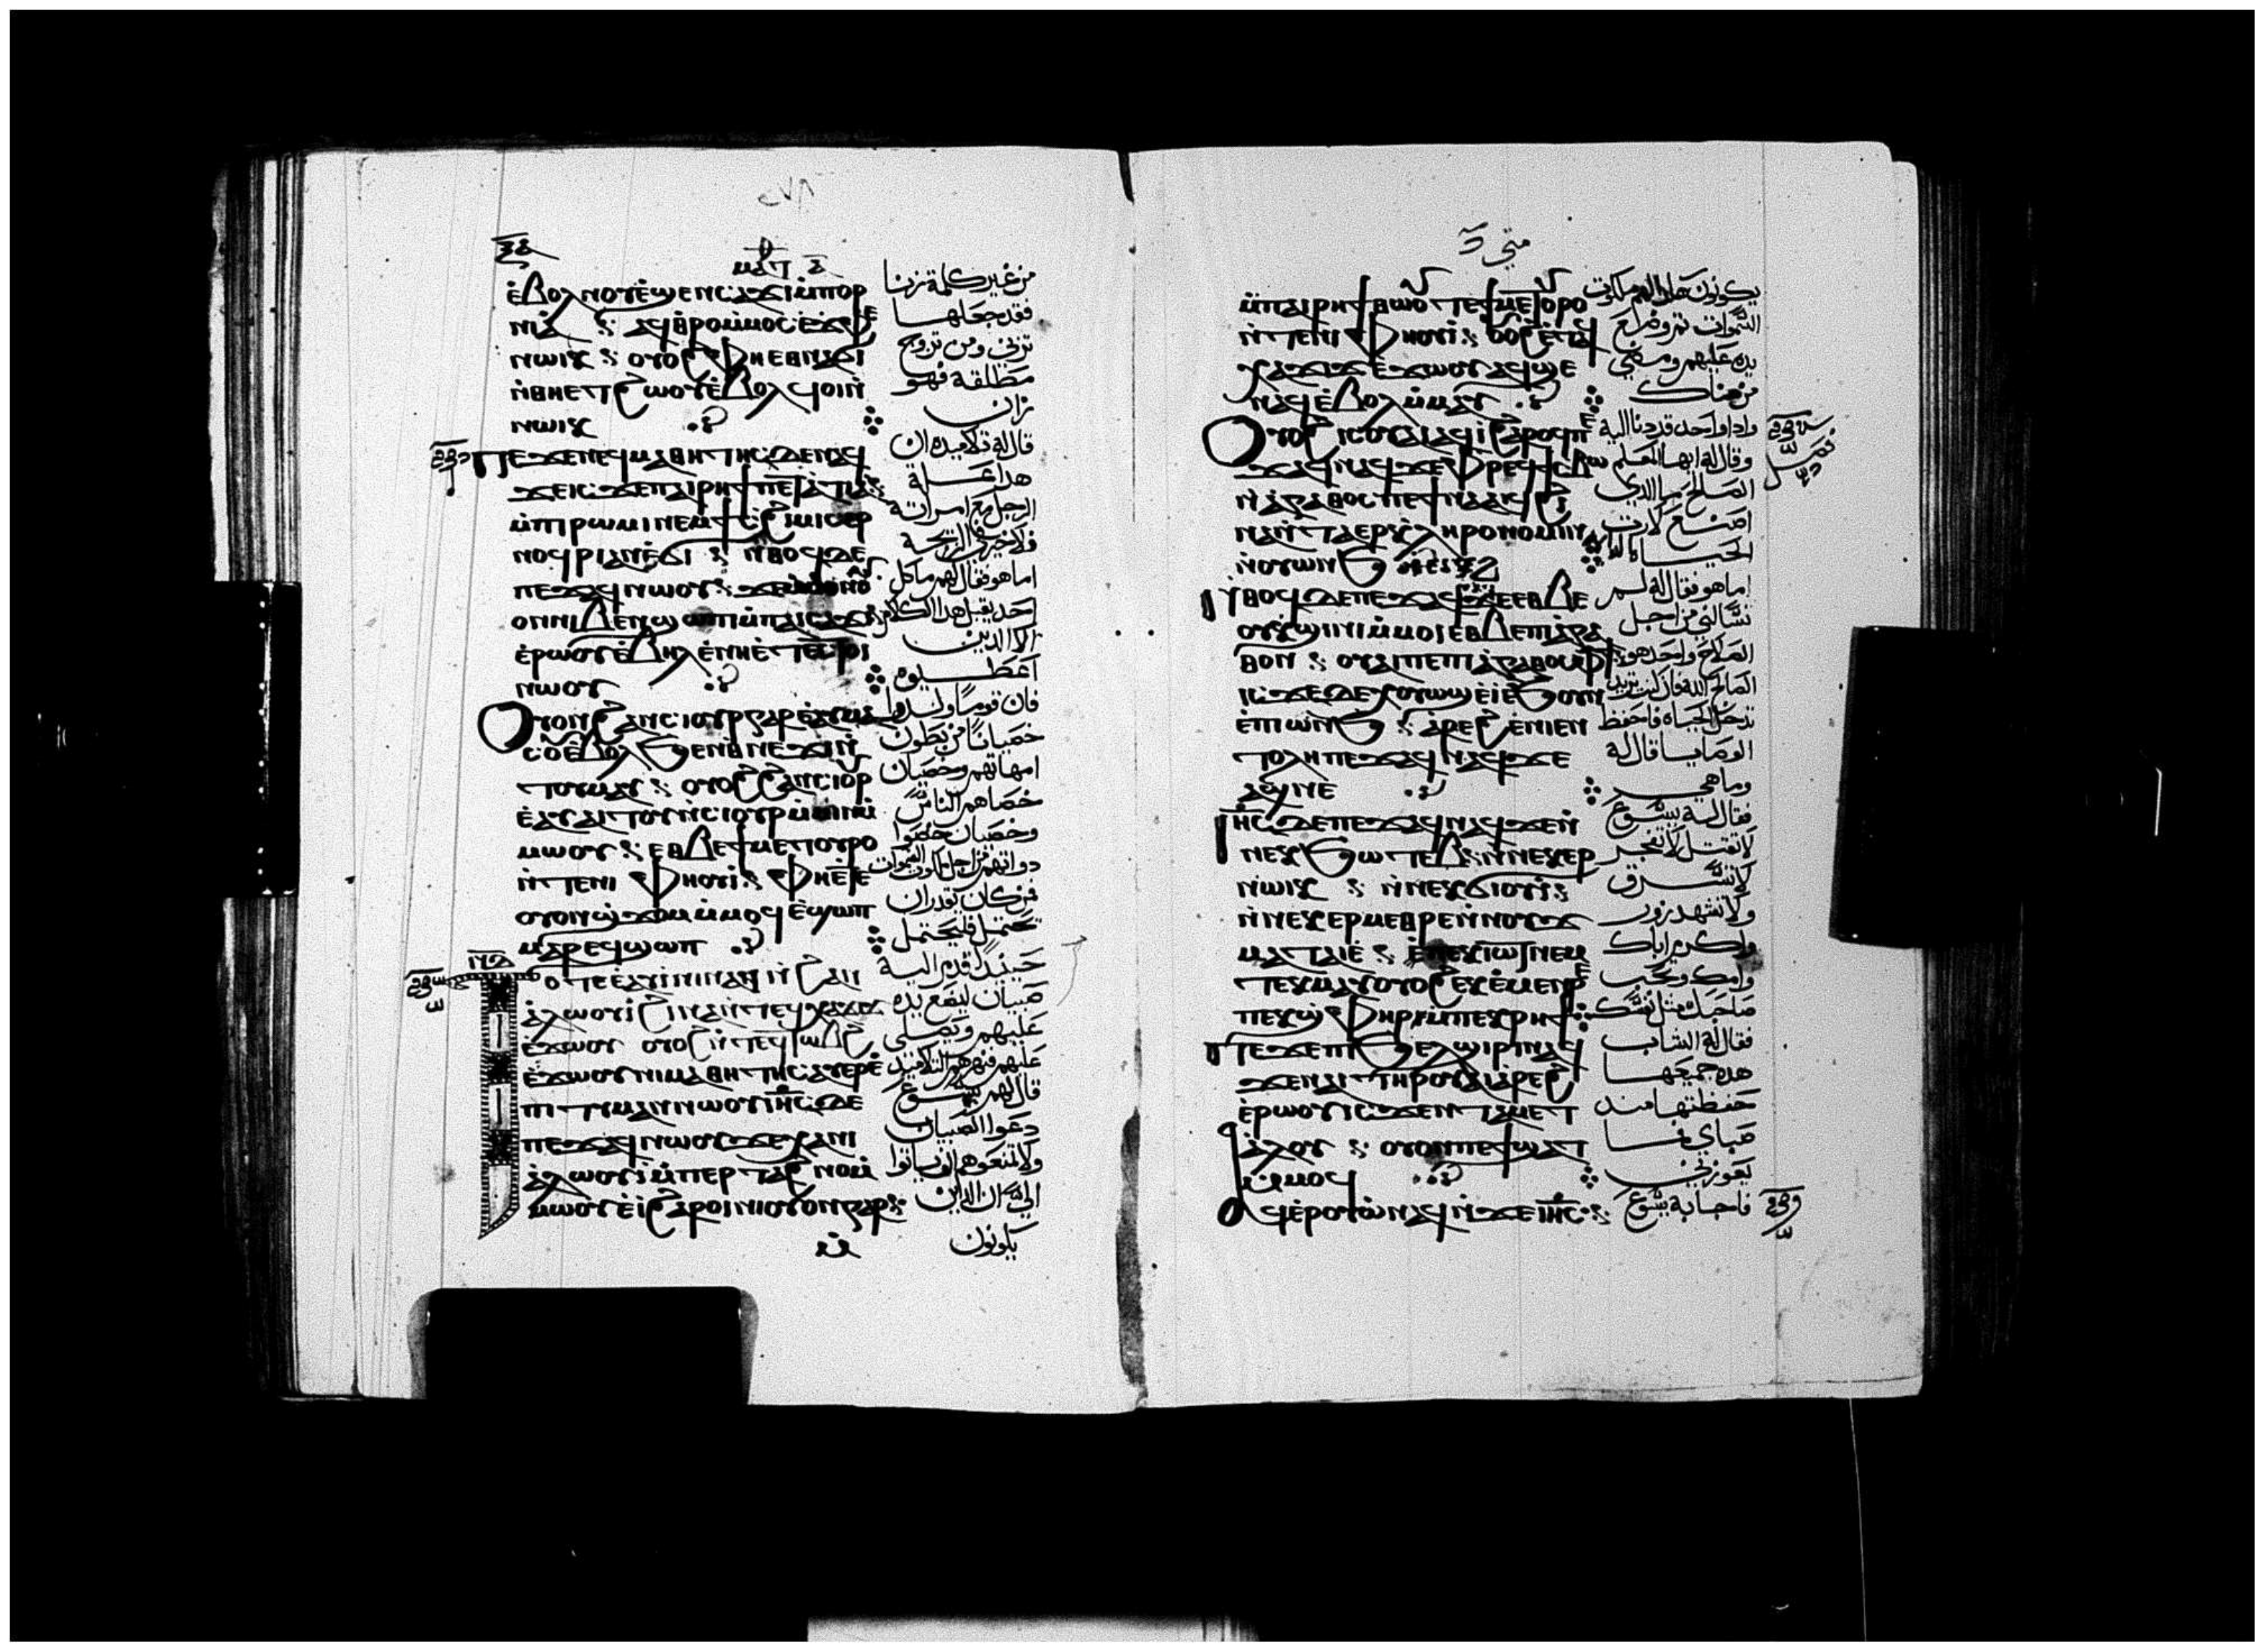 ⲙⲁⲧ ⲁ̅
ⲉ̀ⲃⲟⲗ ⲛⲟⲩⲉ̀ϣⲉⲛⲥⲁϫⲓ ⲙ̀ⲡⲟⲣ
ⲛⲓⲁ̀ ⁘ ⲁϥⲑⲣⲟ ⲙ̀ⲙⲟⲥ ⲉ̀ⲉⲣⲉ
ⲛⲱⲓⲕ ⁘ ⲟⲩⲟϩ ⲫⲏⲉⲑⲛⲁϭⲓ
ⲛ̀ⲑⲏⲉⲧϩⲱⲟⲩ ⲉ̀ⲃⲟⲗ ϥⲟⲓ ⲛ̀
ⲛⲱⲓⲕ
ⲡⲉϫⲉ ⲛⲉϥⲙⲁⲑⲏⲧⲏⲥ ⲇⲉ ⲛⲁϥ
ϫⲉ ⲓⲥϫⲉ ⲡⲁⲓⲣⲏϯ ⲡⲉ ⲧ̀ⲉ̀ⲧⲓⲁ̀
ⲙ̀ⲡⲓⲣⲱⲙⲓ ⲛⲉⲙ ϯⲥϩⲓⲙⲓ ⲥⲉⲣ
ⲛⲟϥⲣⲓ ⲁⲛ ⲉ̀ϭⲓ ⁘ ⲛ̀ⲑⲟϥ ⲇⲉ
ⲡⲉϫⲁϥ ⲛⲱⲟⲩ ⁘ ϫⲉ
ⲟⲛ ⲛⲓⲃⲉⲛ ϣⲱⲡ ⲙ̀ⲡⲁⲓⲥⲁϫⲓ
ⲉ̀ⲣⲱⲟⲩ ⲉ̀ⲃⲏⲗ ⲉ̀ⲛⲏⲉ̀ⲧⲉⲥⲧⲟⲓ
ⲛⲱⲟⲩ
ⲟⲩⲟⲛ ϩⲁⲛⲥⲓⲟⲩⲣ ⲅⲁⲣ ⲉ̀ⲁⲩⲙⲁ
ⲥⲟⲩ ⲉ̀ⲃⲟⲗ ϧⲉⲛ ⲑⲛⲉϫⲓ ⲛ̀
ⲧⲟⲩⲙⲁⲩ ⁘ ⲟⲩⲟϩ ϩⲁⲛⲥⲓⲟⲩⲣ
ⲉ̀ⲁⲩⲁⲓⲧⲟⲩ ⲛ̀ⲥⲓⲟⲩⲣ ⲙ̀ⲙⲓⲛ ⲙ̀
ⲙⲱⲟⲩ ⁘ ⲉⲑⲃⲉ ϯⲙⲉⲧⲟⲩⲣⲟ
ⲛ̀ⲧⲉ ⲛⲓⲫⲏⲟⲩⲓ̀ ⁘ ⲫⲏⲉ̀ⲧⲉ
ⲟⲩⲟⲛ ϣ̀ϫⲟⲙ ⲙ̀ⲙⲟϥ ⲉ̀ϣⲱⲡ
ⲙⲁⲣⲉϥϣⲱⲡ
ⲧⲟⲧⲉ ⲁⲩⲓ̀ⲛⲓ ⲛⲁϥ ⲛ̀ϩⲁⲛ
ⲁ̀ⲗⲱⲟⲩⲓ̀ ϩⲓⲛⲁ ⲛ̀ⲧⲉϥⲭⲁϫⲓϫ
ⲉ̀ϫⲱⲟⲩ ⲟⲩⲟϩ ⲛ̀ⲧⲉϥⲧⲱⲃϩ
ⲉ̀ϫⲱⲟⲩ ⲛⲓⲙⲁⲑⲏⲧⲏⲥ ⲁⲩⲉⲣⲉ̀
ⲡⲓⲧⲓⲙⲁⲛ ⲛⲱⲟⲩ ⲓⲏ̅ⲥ̅ ⲇⲉ
ⲡⲉϫⲁϥ ⲛⲱⲟⲩ ϫⲉ ⲭⲁ ⲛⲓ
ⲁ̀ⲗⲱⲟⲩⲓ̀ ⲙ̀ⲡⲉⲣⲧⲁϩⲛⲟ ⲙ̀
ⲙⲱⲟⲩ ⲉ̀ⲓ̀ ϩⲁⲣⲟⲓ ⲛⲓⲟⲩⲟⲛ ⲅⲁⲣ ⁘
من غير كلمة زنا
فقد جعلها
تزني ومن تزوج
مطلقة فهو
زان
قال له تلاميذه ان
هذا علة
الرجل مع امراته
فلا خير في الزيجة
اما هو فقال لهم ما كل
احد يقبل هذا الكلام
الا الذين
اعطيوه
فان قوما ولدوا
خصيانا من بطون
امهاتهم وخصيان
خصاهم الناس
وخصيان خصوا
ذواتهم من اجل ملكوت السموات
فمن كان يقدر ان
يحتمل فليحتمل
حينئذ قدم اليه
صبيان ليضع يده
عليهم ويصلي
عليهم فنهرهم التلاميذ
قال لهم يسوع
دعوا الصبيان
ولا تمنعوهم ان ياتوا
الي لان الذين
يكونون
متى
ⲙ̀ⲡⲁⲓⲣⲏϯ ⲑⲱⲟⲩ ⲧⲉ ϯⲙⲉⲧⲟⲩⲣⲟ
ⲛ̀ⲧⲉ ⲛⲓⲫⲏⲟⲩⲓ̀ ⁘ ⲟⲩⲟϩ ⲉ̀ⲧⲁϥ
ⲭⲁϫⲓϫ ⲉ̀ϫⲱⲟⲩ ⲁϥϣⲉ
ⲛⲁϥ ⲉ̀ⲃⲟⲗ ⲙ̀ⲙⲁⲩ
ⲟⲩⲟϩ ⲓⲥ ⲟⲩⲁⲓ ⲁϥⲓ̀ ϩⲁⲣⲟϥ ⲡⲉ
ϫⲁϥ ⲛⲁϥ ϫⲉ ⲫ̀ⲣⲉϥϯⲥⲃⲱ
ⲛ̀ⲁⲅⲁⲑⲟⲥ ⲡⲉϯⲛⲁⲁⲓϥ ϩⲓ
ⲛⲁ ⲛ̀ⲧⲁⲉⲣⲕ̀ⲗⲏⲣⲟⲛⲟⲙⲓⲛ
ⲛ̀ⲟⲩⲱⲛϧ ⲛ̀ⲉⲛⲉϩ
ⲛ̀ⲑⲟϥ ⲇⲉ ⲡⲉϫⲁϥ ϫⲉ ⲉⲑⲃⲉ
ⲟⲩ ⲕ̀ϣⲓⲛⲓ ⲙ̀ⲙⲟⲓ ⲉⲑⲃⲉ ⲡⲓⲁⲅⲁ
ⲑⲟⲛ ⁘ ⲟⲩⲁⲓ ⲡⲉ ⲡⲓⲁ̀ⲅⲁⲑⲟⲥ ⲫϯ
ⲓⲥϫⲉ ⲇⲉ ⲭⲟⲩⲱϣ ⲉ̀ⲓ̀ ⲉ̀ϧⲟⲩⲛ
ⲉ̀ⲡⲱⲛϧ ⁘ ⲁ̀ⲣⲉϩ ⲉ̀ⲛⲓⲉⲛ
ⲧⲟⲗⲏ ⲡⲉϫⲁϥ ⲛⲁϥ ϫⲉ
ⲁϣ ⲛⲉ
ⲓⲏ̅ⲥ̅ ⲇⲉ ⲡⲉϫⲁϥ ⲛⲁϥ ϫⲉ ⲛ̀
ⲛⲉⲕϧⲱⲧⲉⲃ ⁘ ⲛ̀ⲛⲉⲕⲉⲣ
ⲛⲱⲓⲕ ⁘ ⲛ̀ⲛⲉⲕϭⲓⲟⲩⲓ̀ ⁘
ⲛ̀ⲛⲉⲕⲉⲣⲙⲉⲑⲣⲉ ⲛ̀ⲛⲟⲩϫ
ⲙⲁⲧⲁⲓⲉ̀ ⁘ ⲡⲉⲕⲓⲱⲧ ⲛⲉⲙ
ⲧⲉⲕⲙⲁⲩ ⲟⲩⲟϩ ⲉⲕⲉ̀ⲙⲉⲛⲣⲉ
ⲡⲉⲕϣ̀ⲫⲏⲣ ⲙ̀ⲡⲉⲕⲣⲏϯ
ⲡⲉϫⲉ ⲡⲓϧⲉⲗϣⲓⲣⲓ ⲛⲁϥ
ϫⲉ ⲛⲁⲓ ⲧⲏⲣⲟⲩ ⲁⲓⲁ̀ⲣⲉϩ
ⲉ̀ⲣⲱⲟⲩ ⲓⲥϫⲉⲛ ⲧⲁⲙⲉⲧ
ⲁ̀ⲗⲟⲩ ⁘ ⲟⲩⲟⲛ ⲡⲉϯϣⲁⲧ
ⲙ̀ⲙⲟϥ
ⲁϥⲉ̀ⲣⲟⲩⲱ̀ ⲛⲁϥ ⲛ̀ϫⲉ ⲓⲏ̅ⲥ̅ ⁘
يكونون هكذا لهم ملكوت
السموات ثم وضع
يده عليهم ومضى
من هناك
واذا واحد قد دنا اليه
وقال له ايها المعلم
الصالح ما الذي
اصنع لارث
الحياة
اما هو فقال له لم
تسالني من اجل
الصلاح واحد هو
الصالح الله فان كنت تريد
تدخل الحياة فاحفظ
الوصايا قال له
وما هي
فقال له يسوع
لا تقتل لا تفجر
لا تسرق
ولا تشهد زور
واكرم اباك
وامك وتحب
صاحبك مثل نفسك
فقال له الشاب
هذه جميعها
حفظتها منذ
صباي فما
يعوزني
فاجابه يسوع